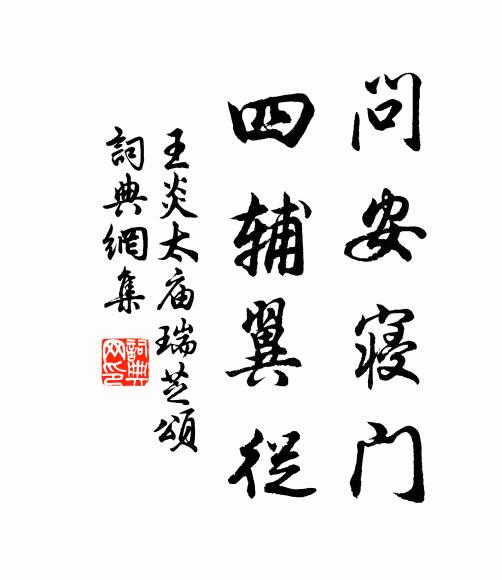 问安寝门
四辅翼從
王炎太庙瑞芝頌
詞典網集
詞典网印